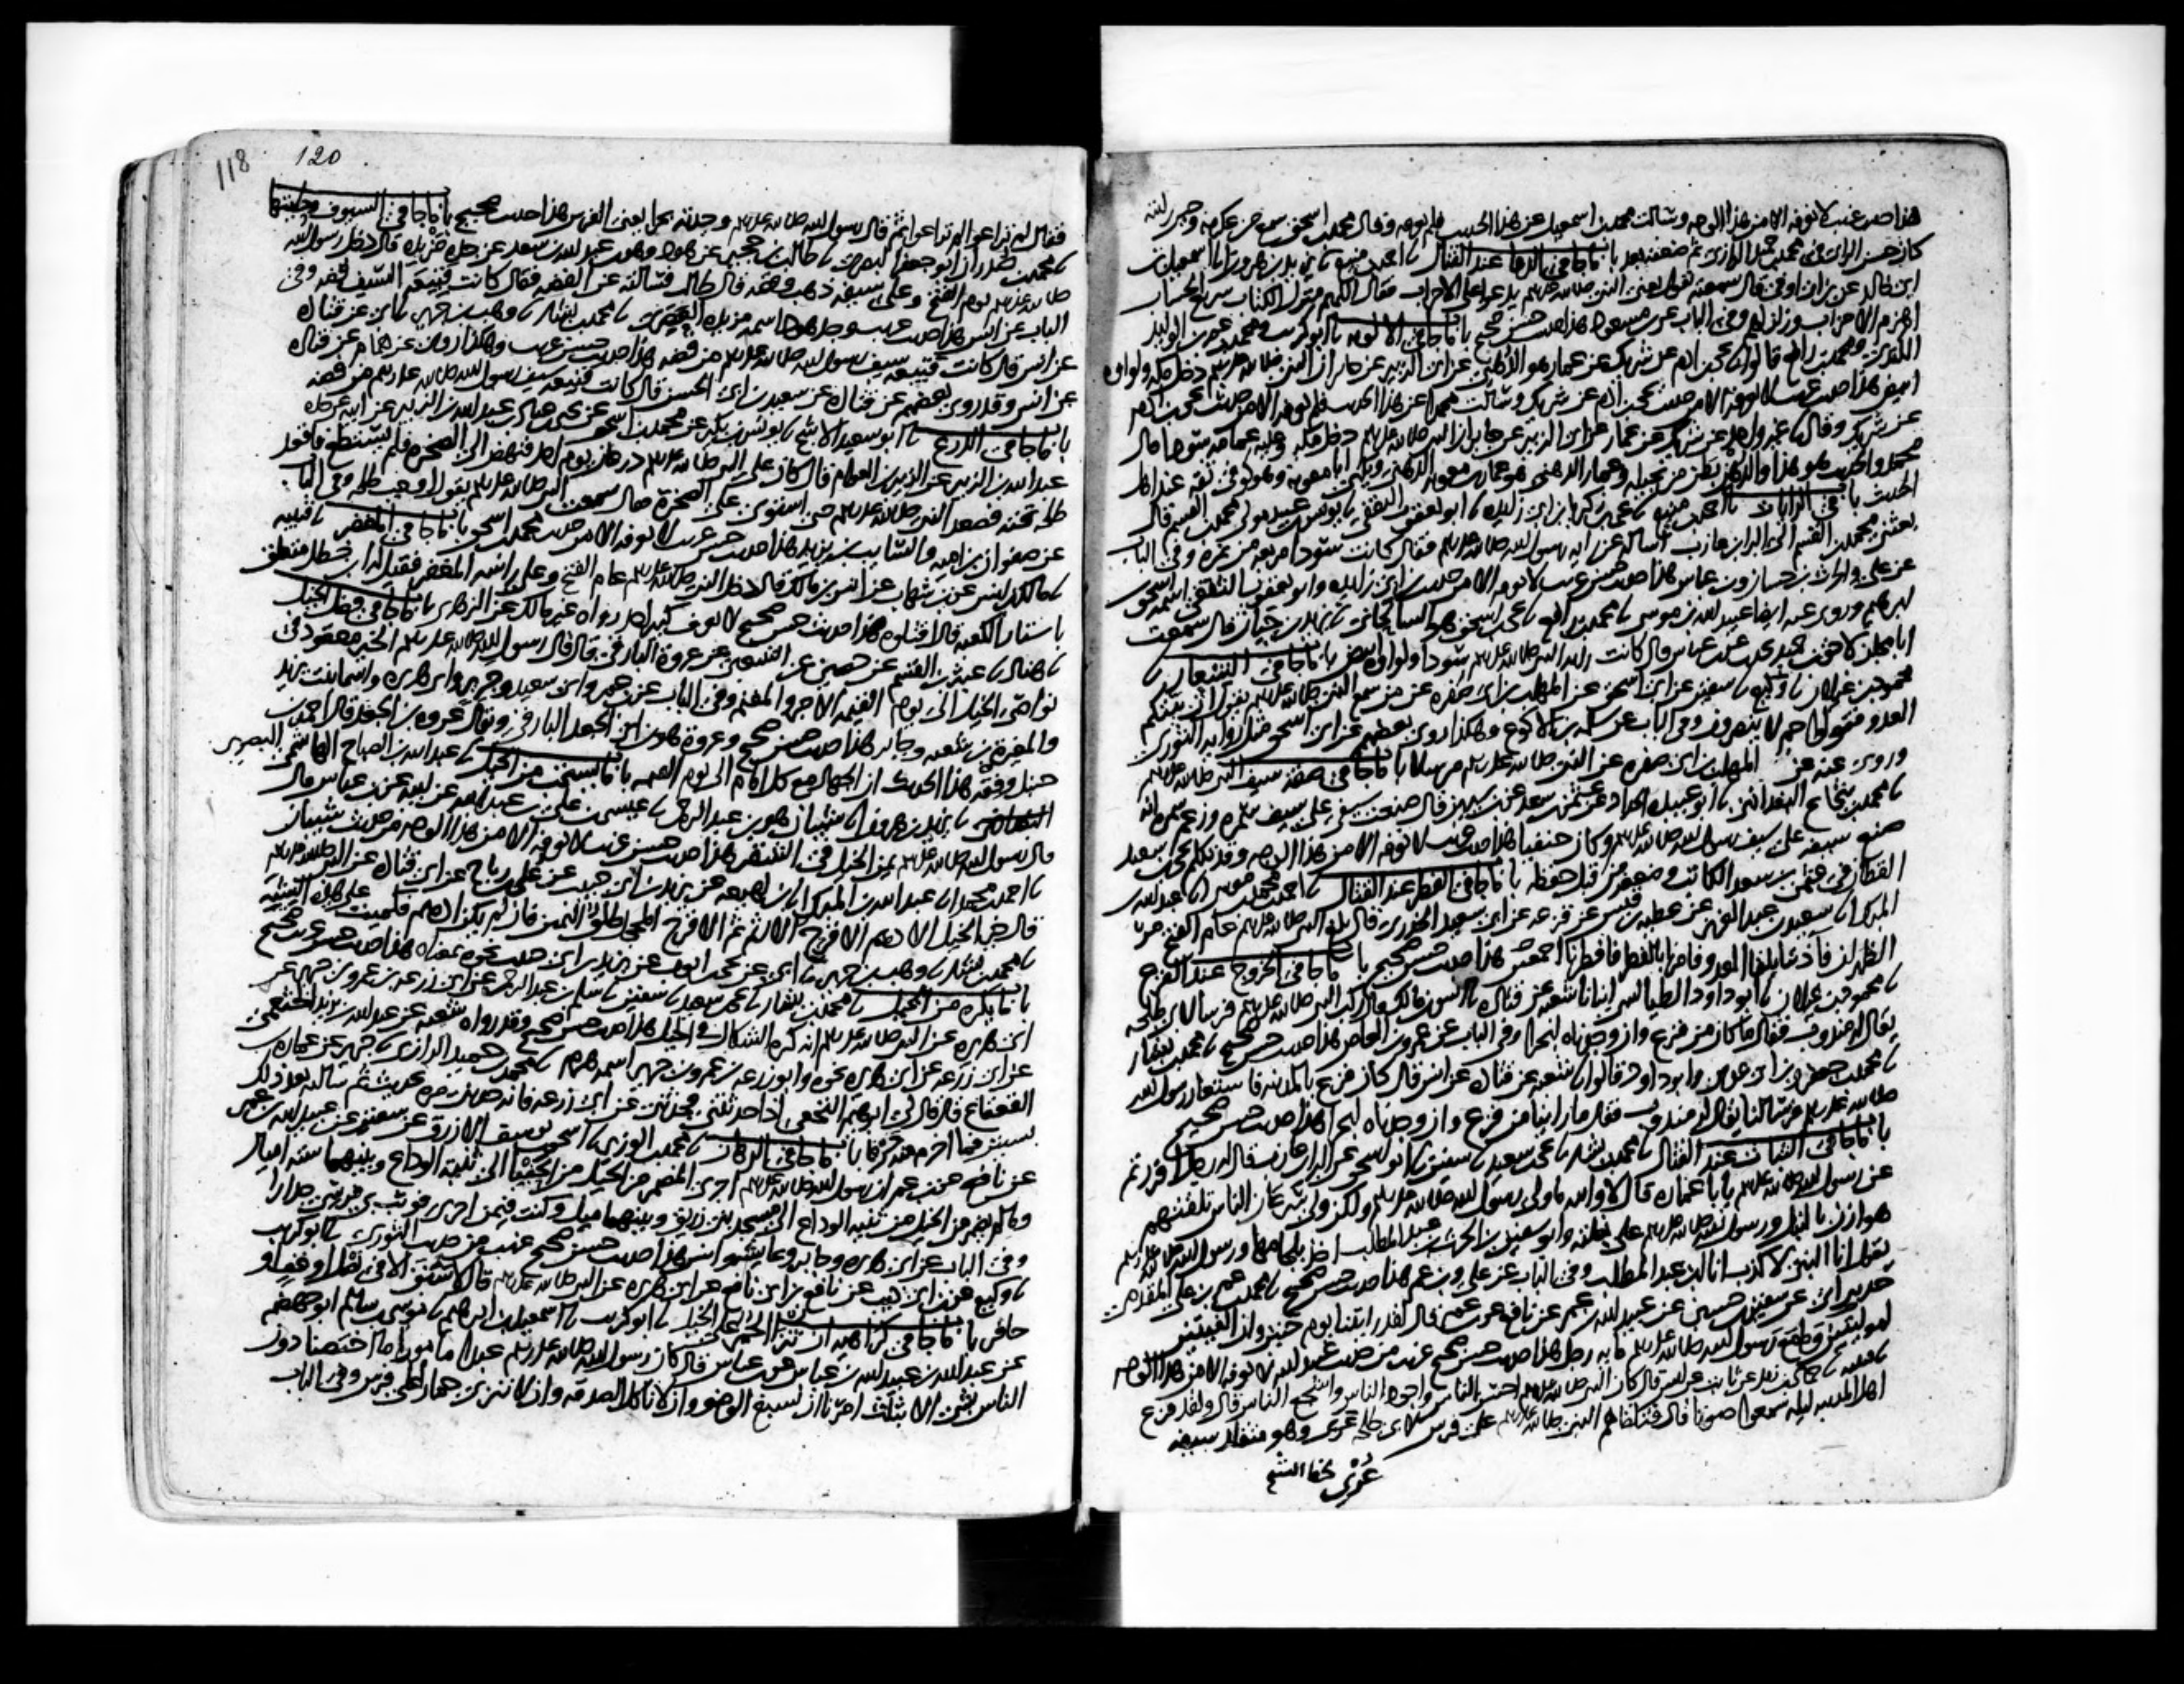 هذا حديث غريب لا نعرفه الا من هذا الوجه وسالت محمد بن اسمعيل عن هذا الحديث فلم يعرفه وقال محمد بن اسحق سمع من عكرمة وحين رايته
كان حسن الراي في محمد بن حميد الرازي ثم ضعفه بعد باب ما جا في الدعا عند القتال نا احمد بن منيع نا يزيد بن هرون انا اسمعيل بن
ابي خالد عن ابن ابي اوفى قال سمعته يقول يعني النبي صلى الله عليه وسلم يدعو على الاحزاب فقال اللهم منزل الكتاب سريع الحساب
اهزم الاحزاب وزلزلهم وفي الباب عن ابن مسعود هذا حديث حسن صحيح باب ما جا في الالوية نا ابو كريب ومحمد بن عمر بن الوليد
الكندي ومحمد بن رافع قالوا نا يحيى بن ادم عن شريك عن عمار هو الدهني عن ابي الزبير عن جابر ان النبي صلى الله عليه وسلم دخل مكة ولواوه
ابيض هذا حديث غريب لا نعرفه الا من حديث يحيى بن ادم عن شريك وسالت محمدا عن هذا الحديث فلم يعرفه الا من حديث يحيى بن ادم
عن شريك وقال نا غير واحد عن شريك عن عمار عن ابي الزبير عن جابر ان النبي صلى الله عليه وسلم دخل مكة وعليه عمامة سودا قال
محمد والحديث هو هذا والدهن بطن من بجيلة وعمار الدهني هو عمار بن معوية الدهني ويكنى ابا معوية وهو كوفي ثقة عند اهل
الحديث باب في الرايات نا احمد بن منيع نا يحيى بن زكريا بن ابي زايدة نا ابو يعقوب الثقفي نا يونس بن عبيد مولى محمد بن القسم قال
بعثني محمد بن القسم الى البرا بن عازب اساله عن راية رسول الله صلى الله عليه وسلم فقال كانت سودا مربعة من نمرة وفي الباب
عن علي والحارث بن حسان وابن عباس هذا حديث حسن غريب لا نعرفه الا من حديث ابن ابي زايدة وابو يعقوب الثقفي اسمه اسحق بن
ابرهيم وروى عنه ايضا عبيد الله بن موسى نا محمد بن رافع نا يحيى بن اسحق هو السالحاني نا يزيد بن حيان قال سمعت
ابا مجلز لاحق بن حميد يحدث عن ابن عباس قال كانت راية النبي صلى الله عليه وسلم سودا ولواوه ابيض باب ما جا في الشعار نا
محمود بن غيلان نا وكيع نا سفين عن ابي اسحق عن المهلب بن ابي صفرة عن من سمع النبي صلى الله عليه وسلم يقول ان بيتكم
العدو فقولوا حم لا ينصرون وفي الباب عن سلمة بن الاكوع وهكذا روى بعضهم عن ابي اسحق مثل رواية الثوري
وروى عنه عن المهلب بن ابي صفرة عن النبي صلى الله عليه وسلم مرسلا باب ما جا في صفة سيف النبي صلى الله عليه وسلم
نا محمد بن شجاع البغدادي نا ابو عبيدة الحداد عن عثمن بن سعد عن ابن سيرين قال صنعت سيفي على سيف سمرة وزعم سمرة انه
صنع سيفه على سيف رسول الله صلى الله عليه وسلم وكان حنفيا هذا حديث غريب لا نعرفه الا من هذا الوجه وقد تكلم يحيى بن سعيد
القطان في عثمن بن سعد الكاتب وضعفه من قبل حفظه باب ما جا في الفطر عند القتال نا احمد بن محمد بن موسى انا عبد الله بن
المبارك انا سعيد بن عبد العزيز عن عطية بن قيس عن قزعة عن ابي سعيد الخدري قال لما بلغ النبي صلى الله عليه وسلم عام الفتح مر
الظهران فاذننا بلقا العدو فامرنا بالفطر فافطرنا اجمعين هذا حديث حسن صحيح باب ما جا في الخروج عند الفزع
نا محمود بن غيلان نا ابو داود الطيالسي انبانا شعبة عن قتادة نا انس بن مالك قال ركب النبي صلى الله عليه وسلم فرسا لابي طلحة
يقال له مندوب فقال ما كان من فزع وان وجدناه لبحرا وفي الباب عن عمرو بن العاص هذا حديث حسن صحيح نا محمد بن بشار
نا محمد بن جعفر وابن ابي عدي وابو داود قالوا نا شعبة عن قتادة عن انس قال كان فزع بالمدينة فاستعار رسول الله
صلى الله عليه وسلم فرسا لنا يقال له مندوب فقال ما راينا من فزع وان وجدناه لبحرا هذا حديث حسن صحيح
باب ما جا في الثبات عند القتال نا محمد بن بشار نا يحيى بن سعيد نا سفين نا ابو اسحق عن البرا بن عازب قال قال له رجل افررتم
عن رسول الله صلى الله عليه وسلم يا با عمارة قال لا والله ما ولى رسول الله صلى الله عليه وسلم ولكن ولى سرعان الناس تلقتهم
هوازن بالنبل ورسول الله صلى الله عليه وسلم على بغلته وابو سفين بن الحرث بن عبد المطلب اخذ بلجامها ورسول الله صلى الله عليه وسلم
يقول انا النبي لا كذب انا ابن عبد المطلب وفي الباب عن علي وابن عمر هذا حديث حسن صحيح نا محمد بن عمر بن علي المقدمي
حدثني ابي عن سفين بن حسين عن عبيد الله بن عمر عن نافع عن ابن عمر قال لقد رايتنا يوم حنين وان الفيتين
لموليتين وما مع رسول الله صلى الله عليه وسلم ماية رجل هذا حديث حسن صحيح غريب من حديث عبيد الله لا نعرفه الا من هذا الوجه
نا قتيبة نا حماد بن زيد عن ثابت عن انس قال كان النبي صلى الله عليه وسلم احسن الناس واجود الناس واشجع الناس قال ولقد فزع
اهل المدينة ليلة سمعوا صوتا قال فتلقاهم النبي صلى الله عليه وسلم على فرس لابي طلحة عري وهو متقلد سيفه
عري بخط الشيخ
118 120
فقال لم تراعوا لم تراعوا ثم قال رسول الله صلى الله عليه وسلم وجدته بحرا يعني الفرس هذا حديث صحيح باب ما جا في السيوف وحليتها
نا محمد بن صدران ابو جعفر البصري نا طالب بن حجير عن هود وهو ابن عبد الله بن سعد عن جده مزيدة قال دخل رسول الله
صلى الله عليه وسلم يوم الفتح وعلى سيفه ذهب وفضة قال طالب فسالته عن الفضة فقال كانت قبيعة السيف فضة وفي
الباب عن انس هذا حديث غريب وجد هود اسمه مزيدة العصري نا محمد بن بشار نا وهب بن جرير نا ابي عن قتادة
عن انس قال كانت قبيعة سيف رسول الله صلى الله عليه وسلم من فضة هذا حديث حسن غريب وهكذا روي عن همام عن قتادة
عن انس وقد روى بعضهم عن قتادة عن سعيد بن ابي الحسن قال كانت قبيعة سيف رسول الله صلى الله عليه وسلم من فضة
باب ما جا في الدرع نا ابو سعيد الاشج نا يونس بن بكير عن محمد بن اسحق عن يحيى بن عباد بن عبد الله بن الزبير عن ابيه عن جده
عبد الله بن الزبير عن الزبير بن العوام قال كان على النبي صلى الله عليه وسلم درعان يوم احد فنهض الى الصخرة فلم يستطع فاقعد
طلحة تحته فصعد النبي صلى الله عليه وسلم حتى استوى على الصخرة قال سمعت النبي صلى الله عليه وسلم يقول اوجب طلحة وفي الباب
عن صفوان بن امية والسايب بن يزيد هذا حديث حسن غريب لا نعرفه الا من حديث محمد بن اسحق باب ما جا في المغفر نا قتيبة
نا مالك بن انس عن ابن شهاب عن انس بن مالك قال دخل النبي صلى الله عليه وسلم عام الفتح وعلى راسه المغفر فقيل له ابن خطل متعلق
باستار الكعبة قال اقتلوه هذا حديث حسن صحيح لا نعرف كبير احد رواه غير مالك عن الزهري باب ما جا في فضل الخيل
نا هناد نا عبثر بن القسم عن حصين عن الشعبي عن عروة البارقي قال قال رسول الله صلى الله عليه وسلم الخير معقود في
نواصي الخيل الى يوم القيمة الاجر والمغنم وفي الباب عن ابن عمر وابي سعيد وجرير وابي هريرة واسما بنت يزيد
والمغيرة بن شعبة وجابر هذا حديث حسن صحيح وعروة هو ابن ابي الجعد البارقي ويقال عروة بن الجعد قال احمد بن
حنبل وفقه هذا الحديث ان الجهاد مع كل امام الى يوم القيمة باب ما يستحب من الخيل نا عبد الله بن الصباح الهاشمي البصري
نا يزيد بن هرون انا شيبان هو ابن عبد الرحمن نا عيسى بن علي بن عبد الله عن ابيه عن ابن عباس قال
قال رسول الله صلى الله عليه وسلم يمن الخيل في الشقر هذا حديث حسن غريب لا نعرفه الا من هذا الوجه من حديث شيبان
نا احمد بن محمد انا عبد الله بن المبارك انا ابن لهيعة عن يزيد بن ابي حبيب عن علي بن رباح عن ابي قتادة عن النبي صلى الله عليه وسلم
قال خير الخيل الادهم الاقرح الارثم ثم الاقرح المحجل طلق اليمين فان لم يكن ادهم فكميت على هذه الشية
نا محمد بن بشار نا وهب بن جرير نا ابي عن يحيى بن ايوب عن يزيد بن ابي حبيب نحوه بمعناه هذا حديث حسن غريب صحيح
باب ما يكره من الخيل نا محمد بن بشار نا يحيى بن سعيد نا سفين نا سلم بن عبد الرحمن عن ابي زرعة بن عمرو بن جرير عن
ابي هريرة عن النبي صلى الله عليه وسلم انه كره الشكال في الخيل هذا حديث حسن صحيح وقد رواه شعبة عن عبد الله بن يزيد الخثعمي
عن ابي زرعة عن ابي هريرة نحوه وابو زرعة بن عمرو بن جرير اسمه هرم نا محمد بن حميد الرازي نا جرير عن عمارة بن
القعقاع قال قال لي ابرهيم النخعي اذا حدثتني فحدثني عن ابي زرعة فانه حدثني مرة بحديث ثم سالته بعد ذلك
بسنين فما اخرم منه حرفا باب ما جا في الرهان نا محمد بن الوزير نا اسحق بن يوسف الازرق عن سفين عن عبيد الله بن عمر
عن نافع عن ابن عمر ان رسول الله صلى الله عليه وسلم اجرى المضمر من الخيل من الحفيا الى ثنية الوداع وبينهما ستة اميال
وما لم يضمر من الخيل من ثنية الوداع الى مسجد بني زريق وبينهما ميل وكنت فيمن اجرى فوثب بي فرسي جدارا
وفي الباب عن ابي هريرة وجابر وعايشة وانس هذا حديث حسن صحيح غريب من حديث الثوري نا ابو كريب
نا وكيع عن ابن ابي ذيب عن نافع بن ابي نافع عن ابي هريرة عن النبي صلى الله عليه وسلم قال لا سبق الا في نصل او خف او
حافر باب ما جا في كراهية ان تنزى الحمر على الخيل نا ابو كريب نا اسمعيل بن ابرهيم نا موسى بن سالم ابو جهضم
عن عبد الله بن عبيد الله بن عباس عن ابن عباس قال كان رسول الله صلى الله عليه وسلم عبدا مامورا ما اختصنا دون
الناس بشي الا بثلث امرنا ان نسبغ الوضو وان لا ناكل الصدقة وان لا ننزي حمارا على فرس وفي الباب